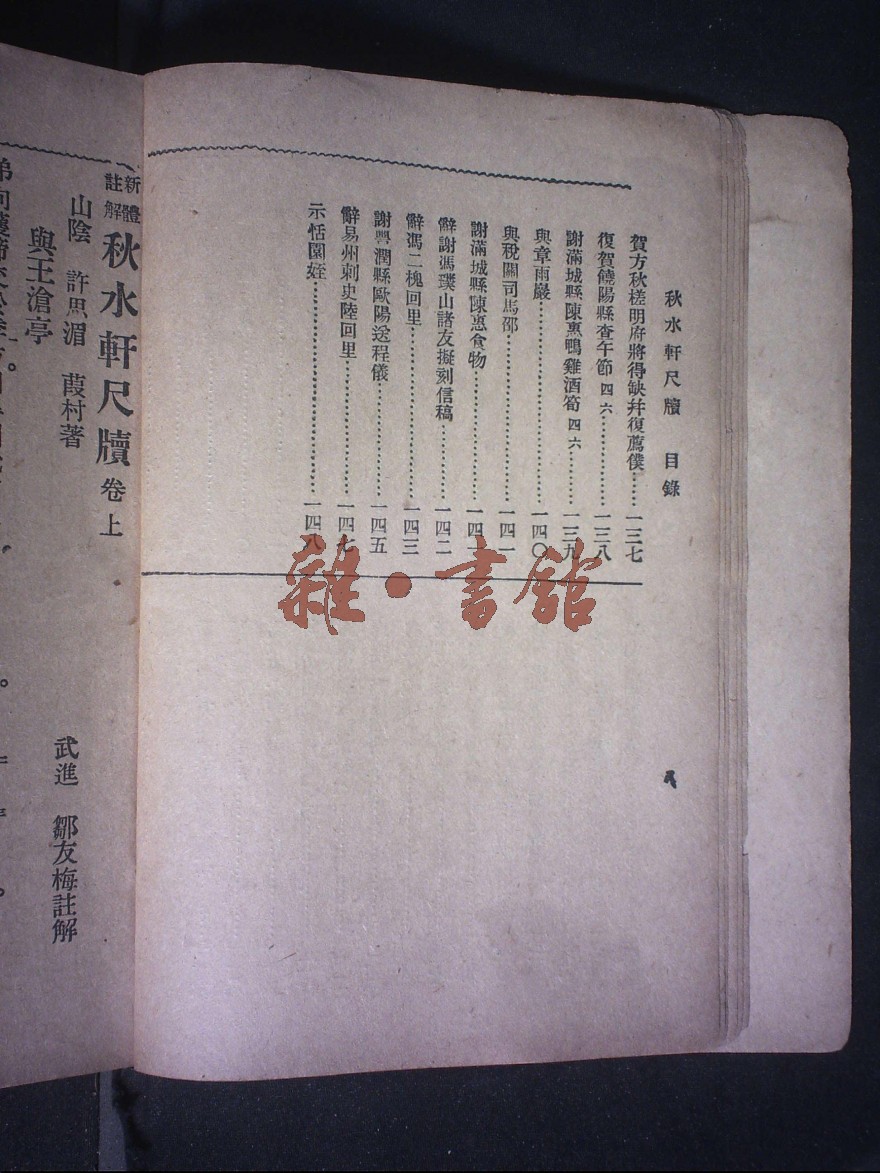 秋水軒尺牘 目錄
賀方秋槎明府將得缺幷復薦僕……一三七
復賀饒陽縣查午節四六……一三八
謝滿城縣陳惠鴨雞酒筍四六……一三九
與章雨巖……一四〇
與稅關司馬邵……一四一
謝滿城縣陳惠食物……一四二
辭謝馮璞山諸友擬刻信稿……一四二
辭馮二槐回里……一四三
謝豐潤縣歐陽送程儀……一四五
辭易州刺史陸回里……一四七
示恬園姪……一四八
雜·書館
新體註解 秋水軒尺牘 卷上
山陰 許思湄 葭村著
武進 鄒友梅註解
與王滄亭